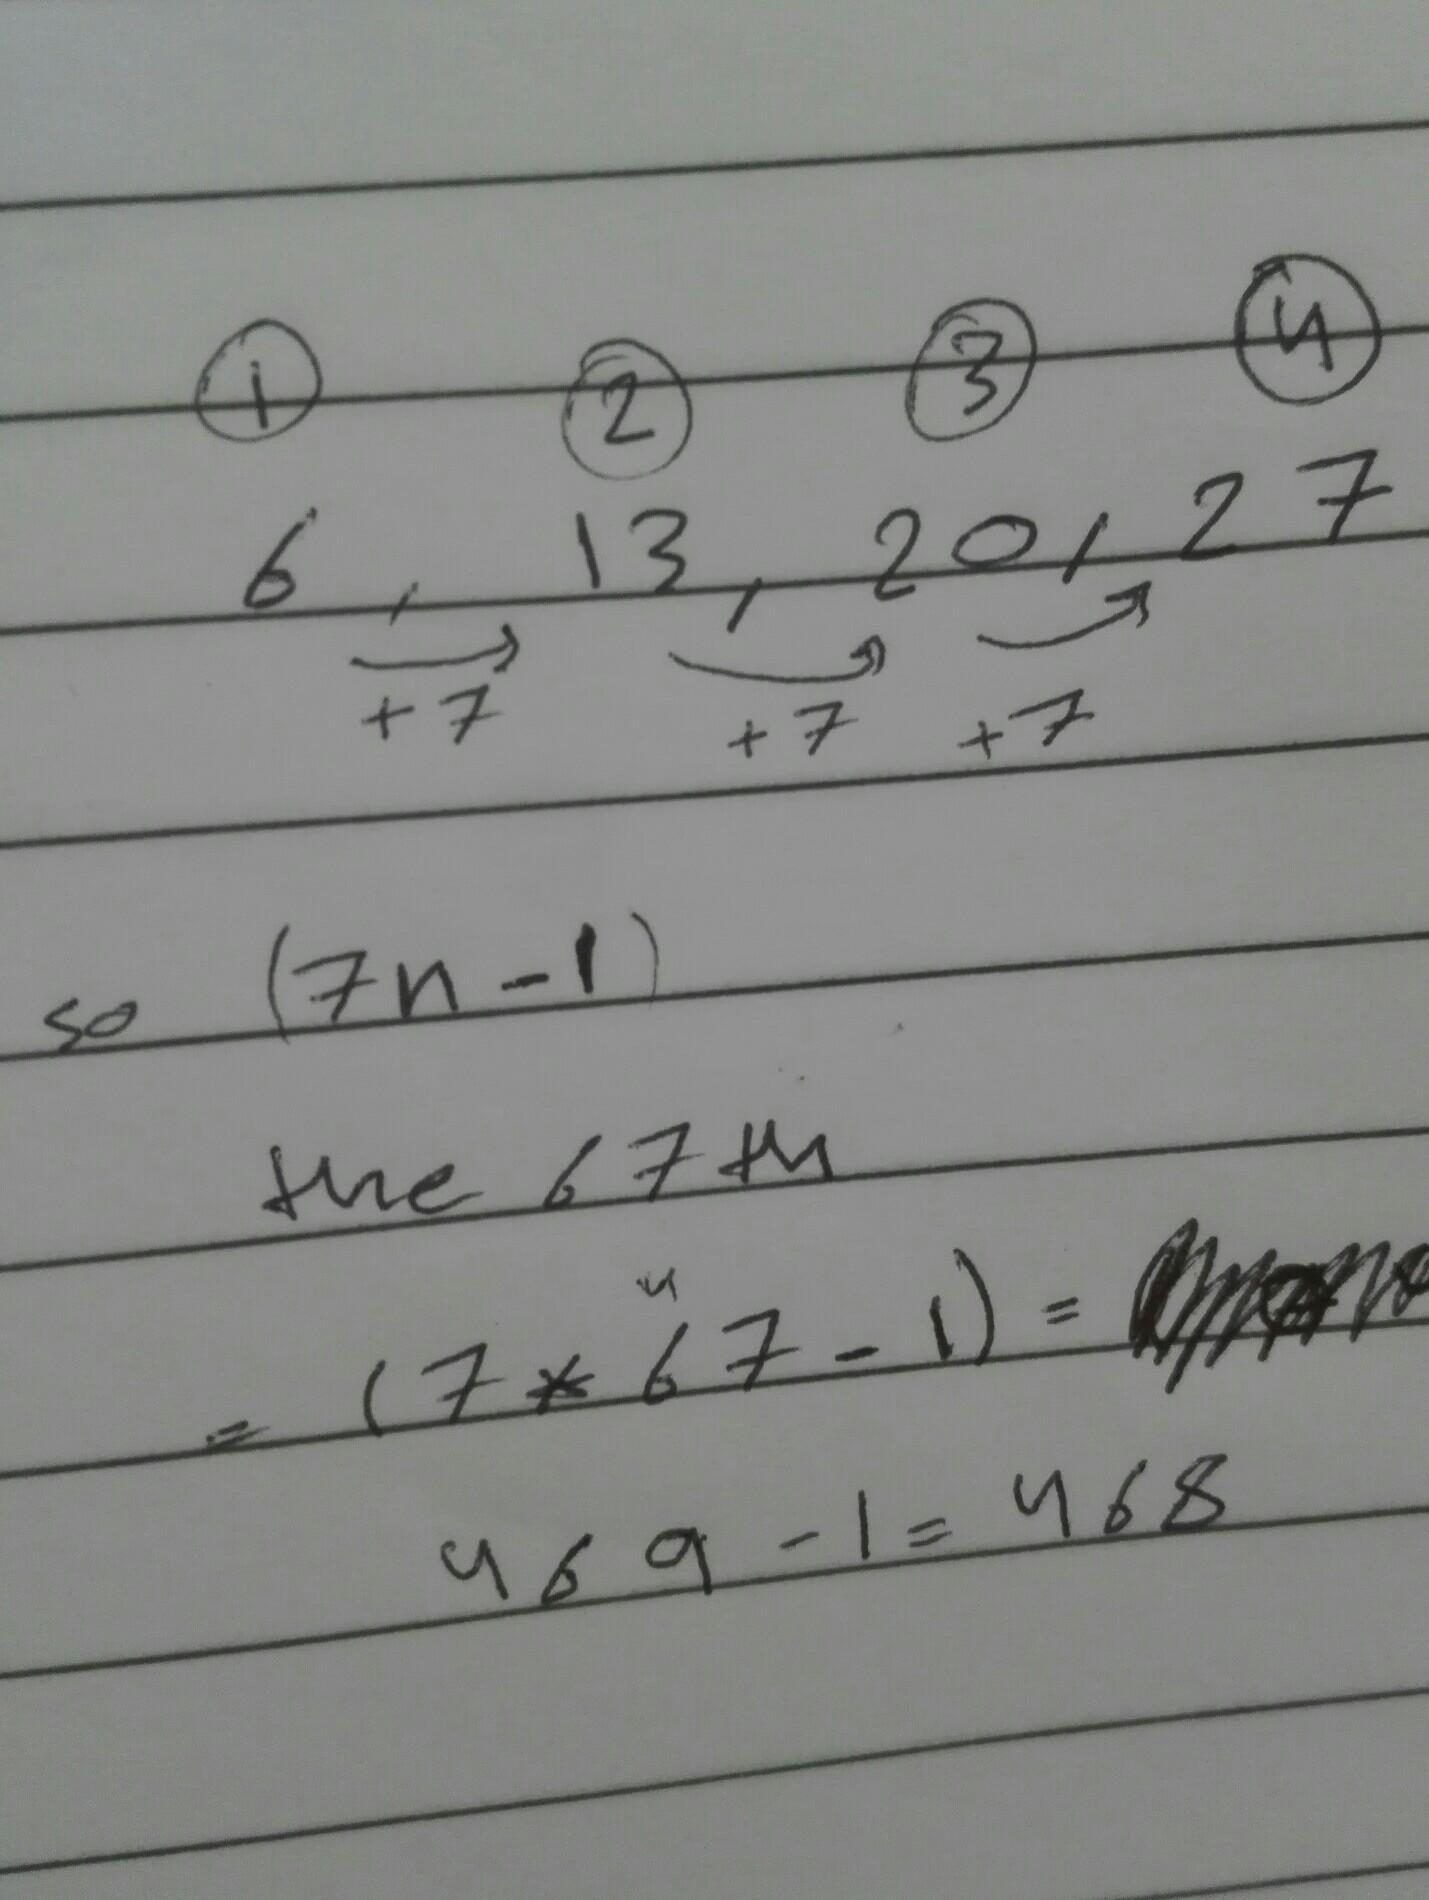 1 2 3 4
6, 13, 20, 27
+7 +7 +7
so (7n-1)
the 67th
4
= (7*67-1) =
469-1=468